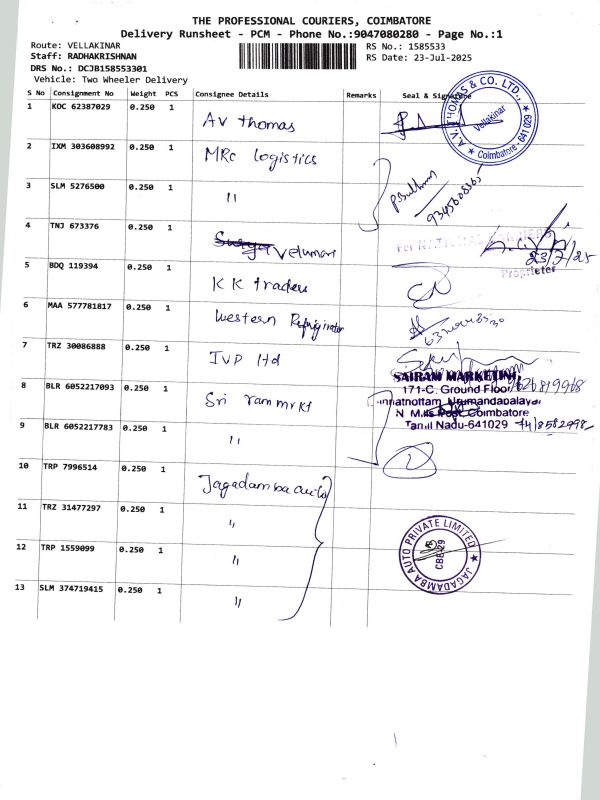 THE PROFESSIONAL COURIERS, COIMBATORE
Delivery Runsheet - PCM - Phone No.:9047080280 - Page No.:1
Route: VELLAKINAR
RS No.: 1585533
Staff: RADHAKRISHNAN
RS Date: 23-Jul-2025
DRS No.: DCJB158553301
Vehicle: Two Wheeler Delivery
S No Consignment No Weight PCS Consignee Details Remarks Seal & Signature
1 KOC 62387029 0.250 1 AV thomas
A.V. THOMAS & CO. LTD., Vellakinar Coimbatore - 641 029
2 IXM 303608992 0.250 1 MRC logistics
3 SLM 5276500 0.250 1 "
4 TNJ 673376 0.250 1 Velumani
For NATIONAL
23/7/25
Proprieter
5 BDQ 119394 0.250 1 KK traders
6 MAA 577781817 0.250 1 Western Refrigirator
7 TRZ 30086888 0.250 1 IVP ltd
SAIRAM MARKETING
171-C, Ground Floor
8 BLR 6052217093 0.250 1 Sri ram mrkt
Coimbatore
Tamil Nadu-641029
9 BLR 6052217783 0.250 1 "
10 TRP 7996514 0.250 1 Jagadamba auto
11 TRZ 31477297 0.250 1 "
12 TRP 1559099 0.250 1 "
JAGADAMBA AUTO PRIVATE LIMITED CBE-29
13 SLM 374719415 0.250 1 "